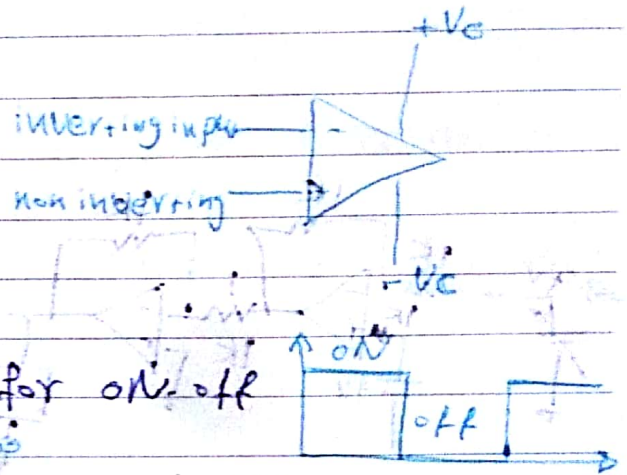 +Vc
inverting input
-
non inverting
+
-Vc
ON
for ON-off
off